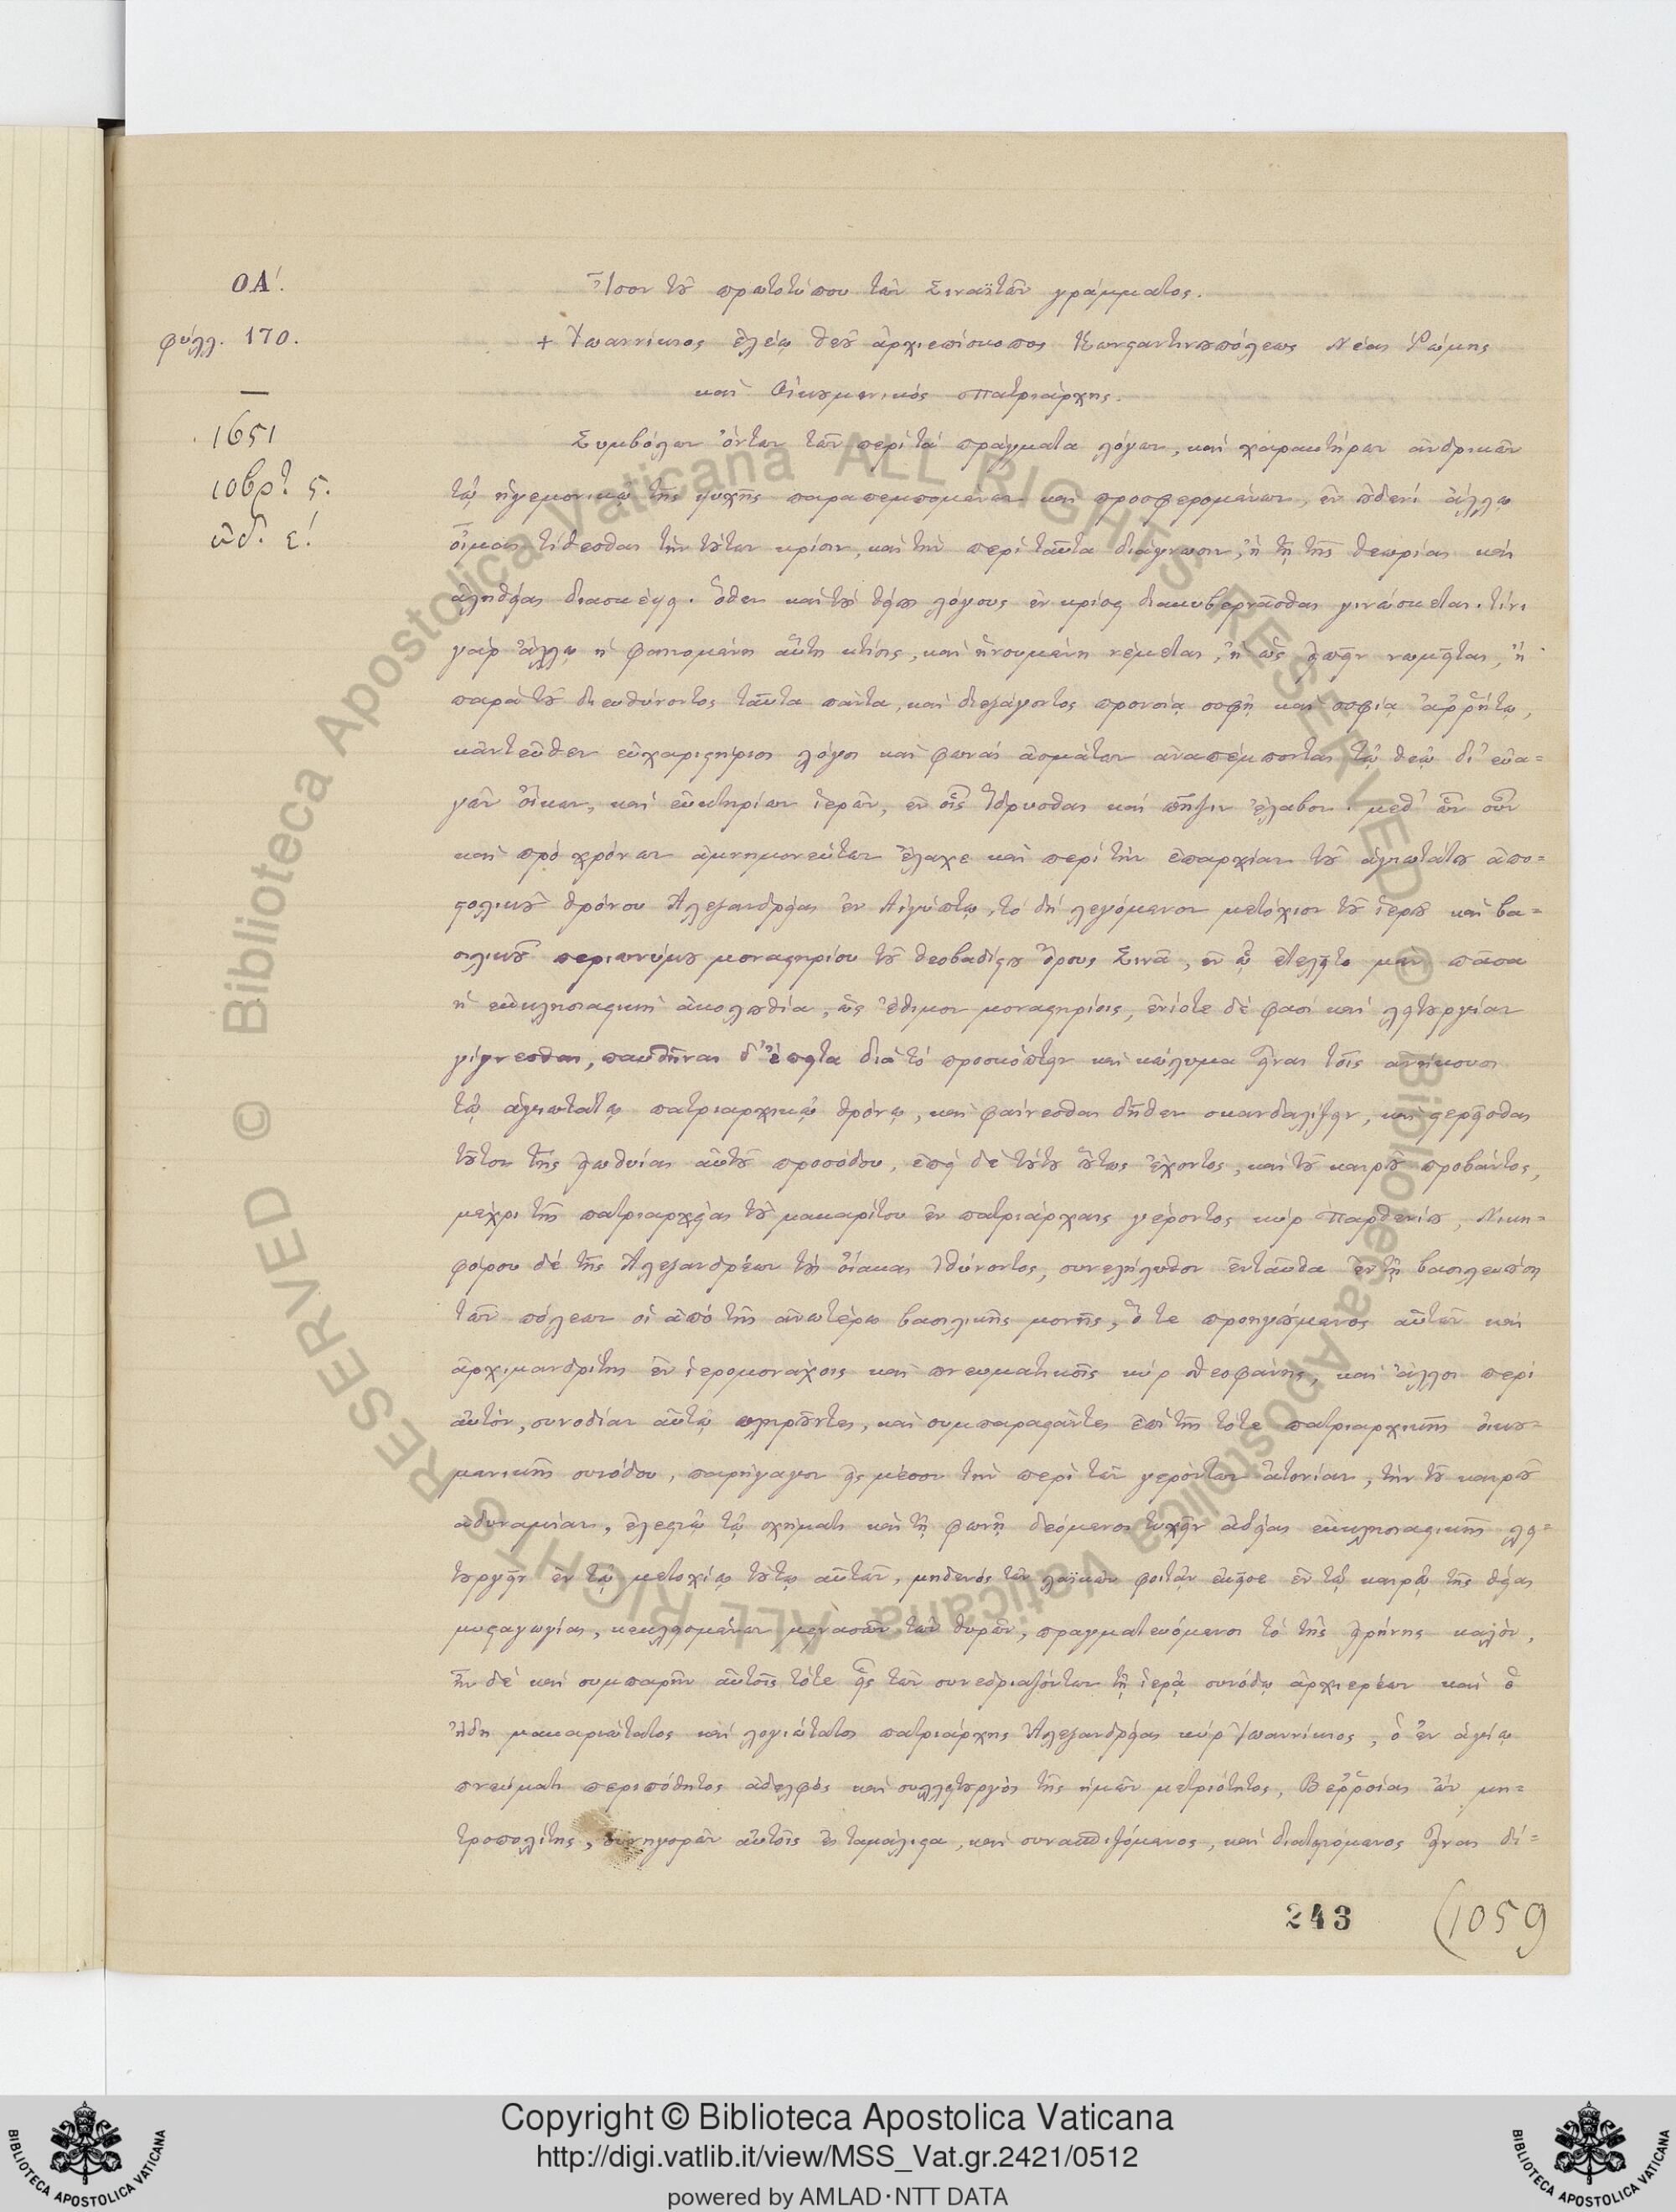 ΟΑ΄.
φύλλ. 170.
1651
10βρ. ς.
ἰνδ. ε΄.
Ἶσον τοῦ πρωτοτύπου τῶν Σιναϊτῶν γράμματος.
+ Ἰωαννίκιος ἐλέῳ θεοῦ ἀρχιεπίσκοπος Κωνσταντινουπόλεως Νέας Ῥώμης
καὶ Οἰκουμενικὸς Πατριάρχης.
Συμβόλων ὄντων τῶν περὶ τὰ πράγματα λόγων, καὶ χαρακτήρων ἀνδρικῶν
τῷ ἡγεμονικῷ τῆς ψυχῆς παραπεμπομένων καὶ προσφερομένων, ἐν οὐδενὶ ἄλλῳ
οἶμαι τίθεσθαι τὴν τούτων κρίσιν, καὶ τὴν περὶ ταῦτα διάγνωσιν, ἢ τῇ τῆς θεωρίας καὶ
ἀληθείας διασκέψει. ὅθεν καὶ τοὺς θείους λόγους ἐν κρίσει διακυβερνᾶσθαι γινώσκεται. τίνι
γὰρ ἄλλῳ ἡ φαινομένη αὕτη κτίσις, καὶ ἡνουμένη νέμεται, ἢ ὡς εἰπεῖν νωμεῖται, ἢ
παρὰ τοῦ διευθύνοντος ταῦτα πάντα, καὶ διεξάγοντος προνοίᾳ σοφῇ καὶ σοφίᾳ ἀῤῥήτῳ,
κἀντεῦθεν εὐχαριστήριοι λόγοι καὶ φωναὶ ἀσμάτων ἀναπέμπονται τῷ θεῷ δι' εὐα=
γῶν οἴκων, καὶ εὐκτηρίων ἱερῶν, ἐν οἷς ἵδρυσθαι καὶ πῆξιν ἔλαβον. μεθ' ὧν οὖν
καὶ πρὸ χρόνων ἀμνημονεύτων ἔλαχε καὶ περὶ τὴν ἐπαρχίαν τοῦ ἁγιωτάτου ἀπο=
στολικοῦ θρόνου Ἀλεξανδρείας ἐν Αἰγύπτῳ, τὸ δὴ λεγόμενον μετόχιον τοῦ ἱεροῦ καὶ βα=
σιλικοῦ περιωνύμου μοναστηρίου τοῦ θεοβαδίστου ὄρους Σινᾶ, ἐν ᾧ ἐτελεῖτο μὲν πᾶσα
ἡ ἐκκλησιαστικὴ ἀκολουθία, ὡς ἔθιμον μοναστηρίοις, ἐνίοτε δὲ φασὶ καὶ λειτουργίαν
γίγνεσθαι, παυθῆναι δ' ἔπειτα διὰ τὸ προσκόπτειν καὶ κώλυμα εἶναι τοῖς ἀνήκουσι
τῷ ἁγιωτάτῳ πατριαρχικῷ θρόνῳ, καὶ φαίνεσθαι δῆθεν σκανδαλίζειν, καὶ στερεῖσθαι
τοῦτον τῆς εἰωθυίας αὐτοῦ προσόδου, ἐπεὶ δὲ τούτου οὕτως ἔχοντος, καὶ τοῦ καιροῦ προβάντος,
μέχρι τῆς πατριαρχείας τοῦ μακαρίτου ἐν πατριάρχαις γέροντος κὺρ Παρθενίου, Νικη=
φόρου δὲ τῆς Ἀλεξανδρέων τοὺς οἴακας ἰθύνοντος, συνελήλυθον ἐνταῦθα ἐν τῇ βασιλευούσῃ
τῶν πόλεων οἱ ἀπὸ τῆς ἀνωτέρω βασιλικῆς μονῆς, ὅ τε προηγούμενος αὐτῶν καὶ
ἀρχιμανδρίτης ἐν ἱερομονάχοις καὶ πνευματικοῖς κὺρ Θεοφάνης, καὶ ἄλλοι περὶ
αὐτὸν, συνοδίαν αὐτῷ πληροῦντες, καὶ συμπαραστάντες ἐπὶ τῆς τότε πατριαρχικῆς οἰκου=
μενικῆς συνόδου, παρήγαγον εἰς μέσον τὴν περὶ τῶν γερόντων ἀτονίαν, τὴν τοῦ καιροῦ
ἀδυναμίαν, ἐλεεινῷ τῷ σχήματι καὶ τῇ φωνῇ δεόμενοι τυχεῖν ἀδείας ἐκκλησιαστικῆς λει=
τουργεῖν ἐν τῷ μετοχίῳ τούτῳ αὐτῶν, μηδενὸς τῶν λαϊκῶν φοιτᾶν ἐκεῖσε ἐν τῷ καιρῷ τῆς θείας
μυσταγωγίας, κεκλεισμένων μενουσῶν τῶν θυρῶν, πραγματευόμενοι τὸ τῆς εἰρήνης καλὸν,
ἦν δὲ καὶ συμπαρὼν αὐτοῖς τότε εἷς τῶν συνεδριαζόντων τῇ ἱερᾷ συνόδῳ ἀρχιερέων καὶ ὁ
ἤδη μακαριώτατος καὶ λογιώτατος πατριάρχης Ἀλεξανδρείας κὺρ Ἰωαννίκιος, ὁ ἐν ἁγίῳ
πνεύματι περιπόθητος ἀδελφὸς καὶ συλλειτουργὸς τῆς ἡμῶν μετριότητος, Βεῤῥοίας ὢν μη=
τροπολίτης, συνηγορῶν αὐτοῖς ἐς ταμάλιστα, καὶ συναπιζόμενος, καὶ διατεινόμενος εἶναι δί=
243
(1059
Copyright © Biblioteca Apostolica Vaticana
http://digi.vatlib.it/view/MSS_Vat.gr.2421/0512
powered by AMLAD·NTT DATA
BIBLIOTECA APOSTOLICA VATICANA
BIBLIOTECA APOSTOLICA VATICANA
© Biblioteca Apostolica Vaticana ALL RIGHTS RESERVED
© Biblioteca Apostolica Vaticana ALL RIGHTS RESERVED